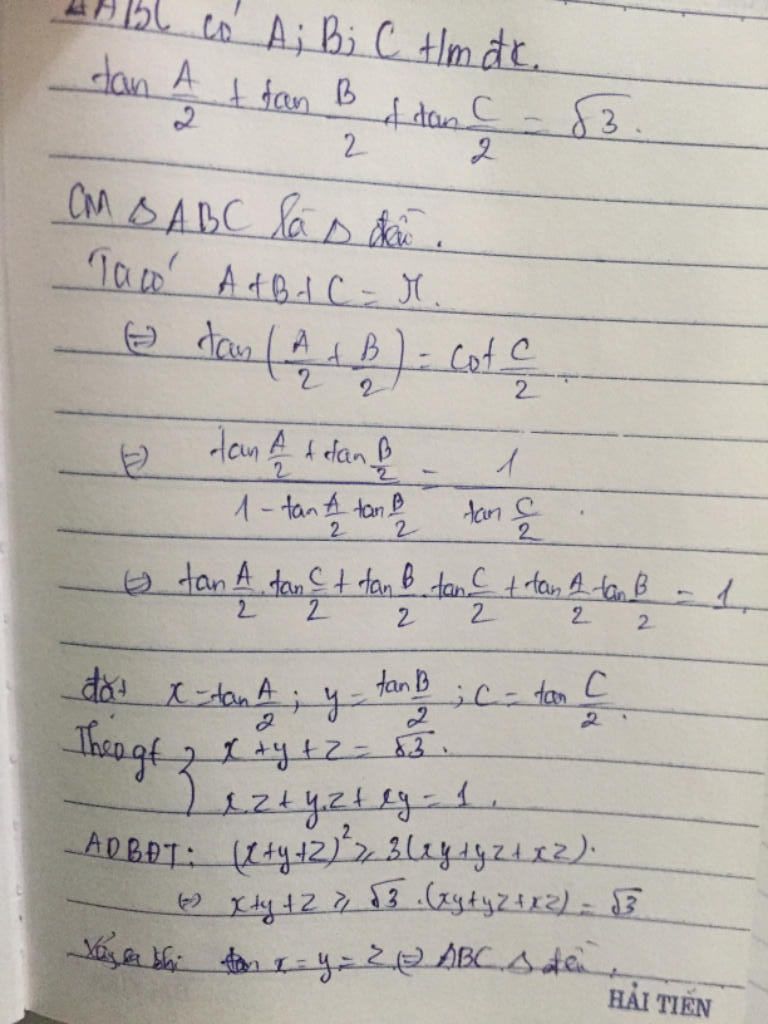 ΔABC có A; B; C t/m đk.
tan A/2 + tan B/2 + tan C/2 = √3.
CM Δ ABC là Δ đều.
Ta có A+B+C = π.
(=) tan(A/2 + B/2) = cot C/2.
(=) (tan A/2 + tan B/2)/(1 - tan A/2 tan B/2) = 1/(tan C/2).
(=) tan A/2 . tan C/2 + tan B/2 . tan C/2 + tan A/2 tan B/2 = 1.
đặt x = tan A/2; y = tan B/2; C = tan C/2.
Theo gt { x + y + z = √3.
x.z + y.z + xy = 1.
ADBĐT: (x+y+z)² ≥ 3(xy+yz+xz).
(=) x+y+z ≥ √3.(xy+yz+xz) = √3
Xảy ra khi x = y = z (=) ABC Δ đều.
HẢI TIẾN